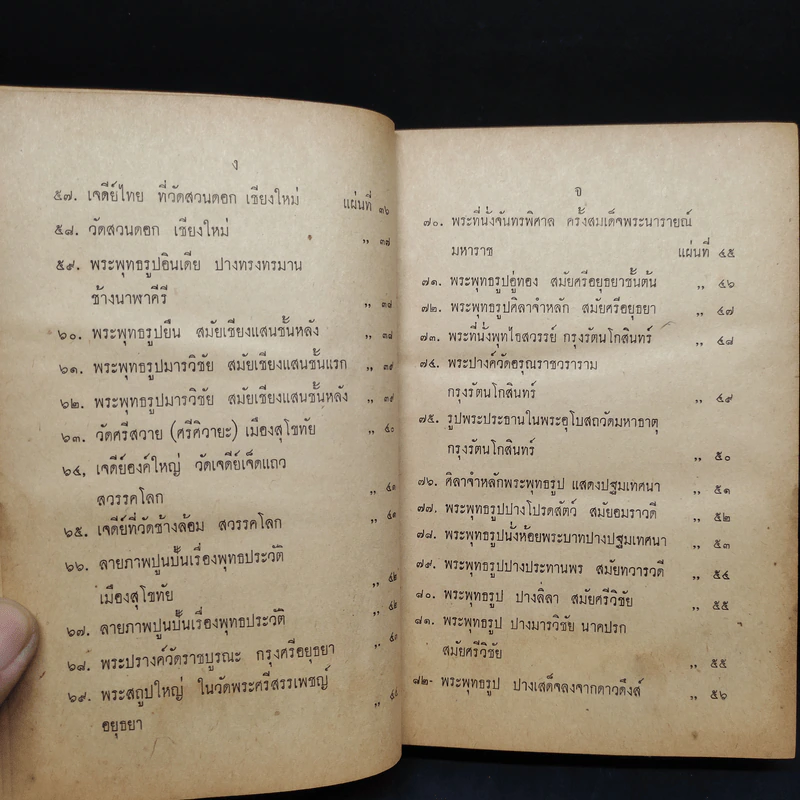 ง
๕๗. เจดีย์ไทย ที่วัดสวนดอก เชียงใหม่ แผ่นที่ ๓๖
๕๘. วัดสวนดอก เชียงใหม่ ,, ๓๗
๕๙. พระพุทธรูปอินเดีย ปางทรงทรมาน
ช้างนาฬาคีรี ,, ๓๘
๖๐. พระพุทธรูปยืน สมัยเชียงแสนชั้นหลัง ,, ๓๘
๖๑. พระพุทธรูปมารวิชัย สมัยเชียงแสนชั้นแรก ,, ๓๙
๖๒. พระพุทธรูปมารวิชัย สมัยเชียงแสนชั้นหลัง ,, ๓๙
๖๓. วัดศรีสวาย (ศรีศิวายะ) เมืองสุโขทัย ,, ๔๐
๖๔, เจดีย์องค์ใหญ่ วัดเจดีย์เจ็ดแถว
สวรรคโลก ,, ๔๑
๖๕. เจดีย์ที่วัดช้างล้อม สวรรคโลก ,, ๔๑
๖๖. ลายภาพปูนปั้นเรื่องพุทธประวัติ
เมืองสุโขทัย ,, ๔๒
๖๗. ลายภาพปูนปั้นเรื่องพุทธประวัติ ,, ๔๒
๖๘. พระปรางค์วัดราชบูรณะ กรุงศรีอยุธยา ,,
๖๙. พระสถูปใหญ่ ในวัดพระศรีสรรเพชญ์
อยุธยา ,, ๔๔
จ
๗๐. พระที่นั่งจันทรพิศาล ครั้งสมเด็จพระนารายณ์
มหาราช แผ่นที่ ๔๕
๗๑. พระพุทธรูปอู่ทอง สมัยศรีอยุธยาชั้นต้น ,, ๔๖
๗๒. พระพุทธรูปศิลาจำหลัก สมัยศรีอยุธยา ,, ๔๗
๗๓. พระที่นั่งพุทไธสวรรย์ กรุงรัตนโกสินทร์ ,, ๔๘
๗๔. พระปางค์วัดอรุณราชวราราม
กรุงรัตนโกสินทร์ ,, ๔๙
๗๕. รูปพระประธานในพระอุโบสถวัดมหาธาตุ
กรุงรัตนโกสินทร์ ,, ๕๐
๗๖. ศิลาจำหลักพระพุทธรูป แสดงปฐมเทศนา ,, ๕๑
๗๗. พระพุทธรูปปางโปรดสัตว์ สมัยอมราวดี ,, ๕๒
๗๘. พระพุทธรูปนั่งห้อยพระบาทปางปฐมเทศนา ,, ๕๓
๗๙. พระพุทธรูปปางประทานพร สมัยทวารวดี ,, ๕๔
๘๐. พระพุทธรูป ปางลีลา สมัยศรีวิชัย ,, ๕๕
๘๑. พระพุทธรูป ปางมารวิชัย นาคปรก
สมัยศรีวิชัย ,, ๕๕
๘๒- พระพุทธรูป ปางเสด็จลงจากดาวดึงส์ ,, ๕๖